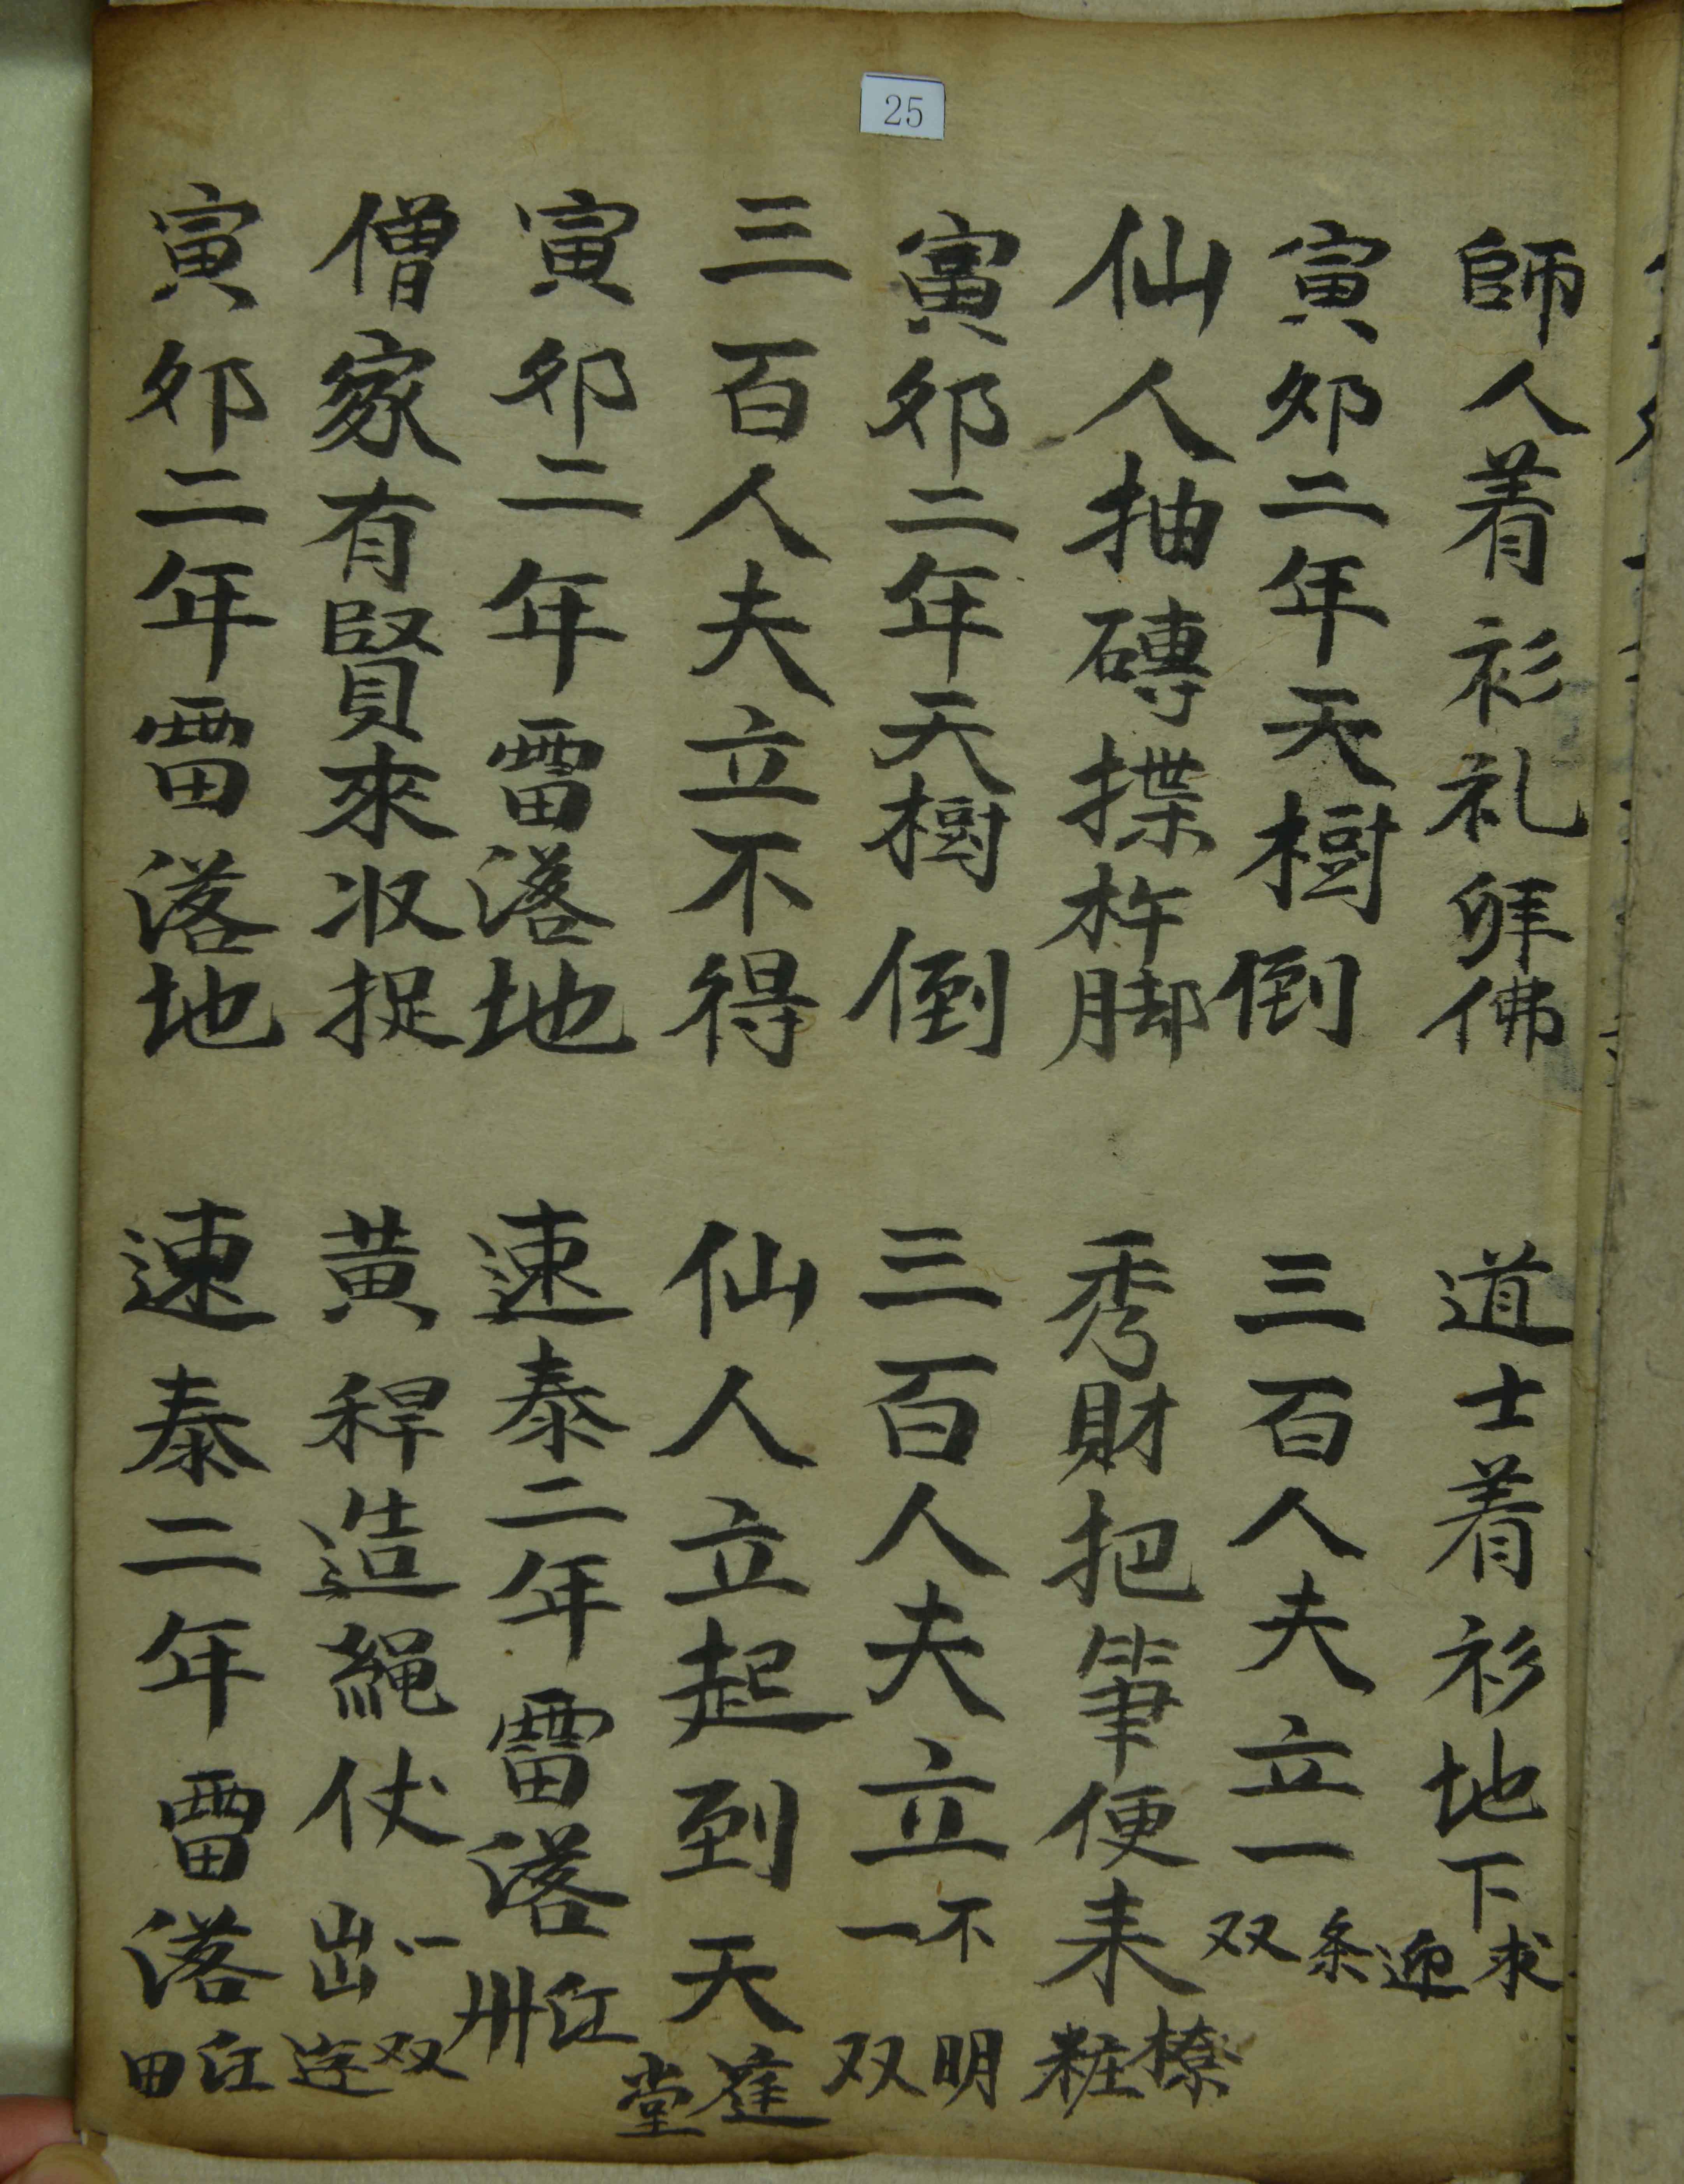 25
師人着衫礼拜佛 道士着衫地下求迎
寅卯二年天樹倒 三百人夫立一条双
仙人抽磚揲杵脚 秀財把筆便来㯫粧
寅卯二年天樹倒 三百人夫立不一明双
三百人夫立不得 仙人立起到天莛堂
寅卯二年雷落地 速泰二年雷落江州
僧家有賢來収捉 黃稈造繩仗出一双
寅卯二年雷落地 速泰二年雷落江田